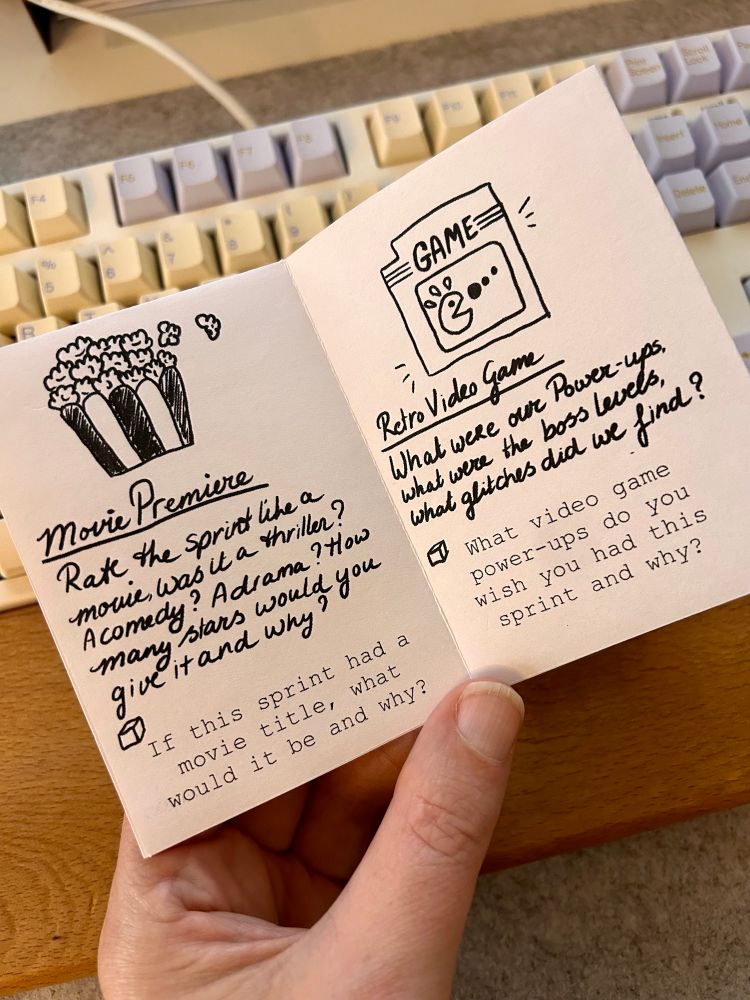 Movie Premiere
Rate the sprint like a
movie, was it a thriller?
A comedy? A drama? How
many stars would you
give it and why?
If this sprint had a
movie title, what
would it be and why?
GAME
Retro Video Game
What were our Power-ups,
what were the boss levels,
what glitches did we find?
What video game
power-ups do you
wish you had this
sprint and why?
F4
F5
F6
F7
F8
F9
F10
F11
Print
Screen
Scroll
Lock
Insert
Home
Delete
End
%
5
^
6
&
7
*
8
(
9
R